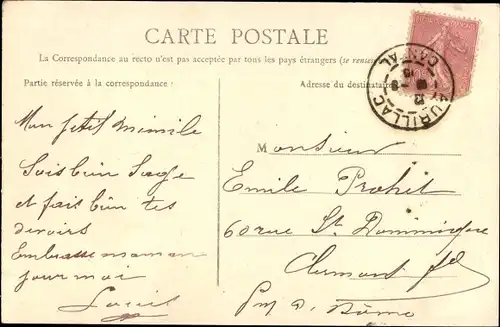 CARTE POSTALE
La Correspondance au recto n'est pas acceptée par tous les pays étrangers (se rensei
Partie réservée à la correspondance:
Adresse du destinataire
AURILLAC
CANTAL
Mon petit mimile
Sois bien Sage
et fais bien tes
devoirs
Embrasse maman
pour moi
Louis
Monsieur
Emile Prohet
60 rue St Dominique
Clermont fd
Puy de Dôme